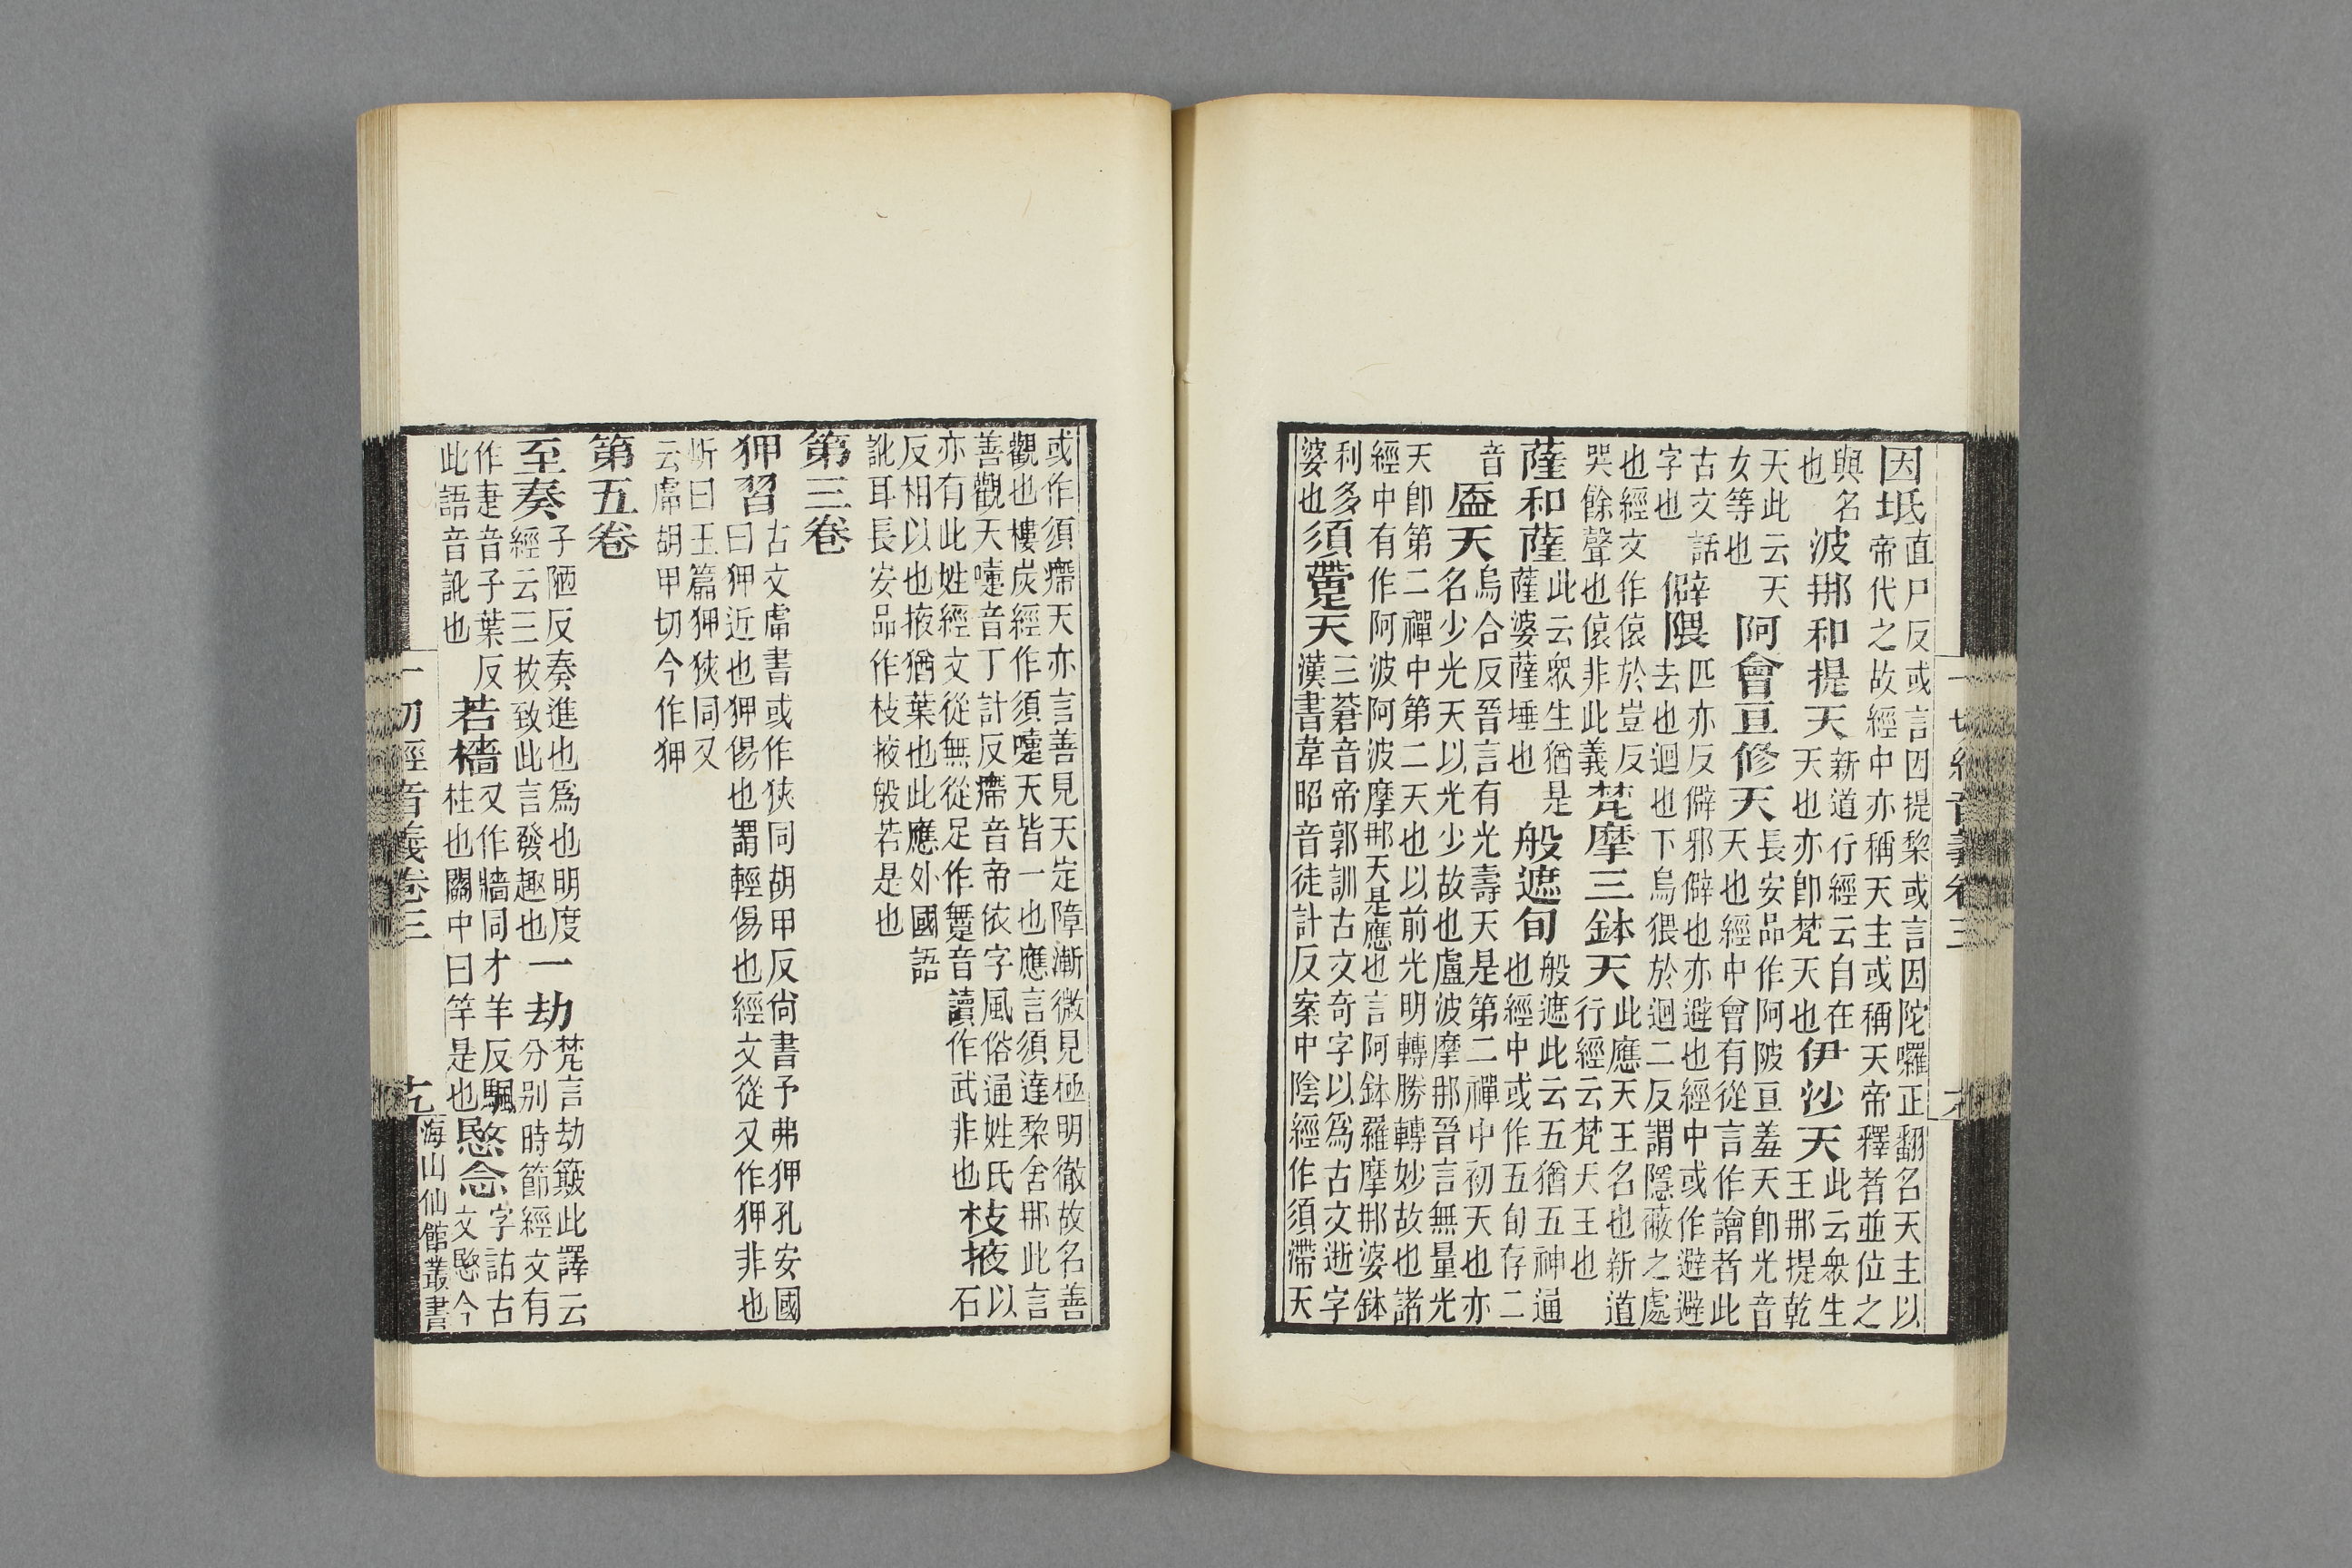 因坻
直尸反或言因提棃或言因陀囉正翻名天主以
帝代之故經中亦稱天主或稱天帝釋者並位之
與名
也
波那和提天
新道行經云自在
天也亦卽梵天也
伊沙天
此云衆生
王那提乾
天此云天
女等也
阿會亘修天
長安品作阿陂亘羞天卽光音
天也經中會有從言作譮者此
古文話
字也
僻隈
匹亦反僻邪僻也亦避也經中或作避避
去也迴也下烏猥於迴二反謂隱蔽之處
也經文作偯於豈反
哭餘聲也偯非此義
梵摩三鉢天
此應天王名也新道
行經云梵天王也
薩和薩
此云衆生猶是
薩婆薩埵也
般遮旬
般遮此云五猶五神通
也經中或作五旬存二
音
盇天
烏合反晉言有光壽天是第二禪中初天也亦
名少光天以光少故也盧波摩那晉言無量光
天卽第二禪中第二天也以前光明轉勝轉妙故也諸
經中有作阿波阿波摩那天是應也言阿鉢羅摩那婆鉢
利多
婆也
須天
三蒼音帝郭訓古文奇字以爲古文逝字
漢書韋昭音徒計反案中陰經作須滯天
或作須㿃天亦言善見天定障漸微見極明徹故名善
觀也樓炭經作須嚏天皆一也應言須達棃舍那此言
善觀天嚏音丁計反㿃音帝依字風俗通姓氏
亦有此姓經文從無從足作音讀作武非也
枝掖
以
石
反相以也掖猶葉也此應外國語
訛耳長安品作枝掖般若是也
第三卷
狎習
古文庘書或作狹同胡甲反尚書予弗狎孔安國
曰狎近也狎傷也謂輕傷也經文從又作狎非也
㪽曰玉篇狎狹同又
云庘胡甲切今作狎
第五卷
至奏
子陋反奏進也爲也明度
經云三抜致此言發趣也
一劫
梵言劫簸此譯云
分别時節經文有
作疌音子葉反
此語音訛也
若檣
又作牆同才羊反颿
柱也關中曰竿是也
愍念
字詁古
文愍今
一切經音義卷三
海山仙館叢書